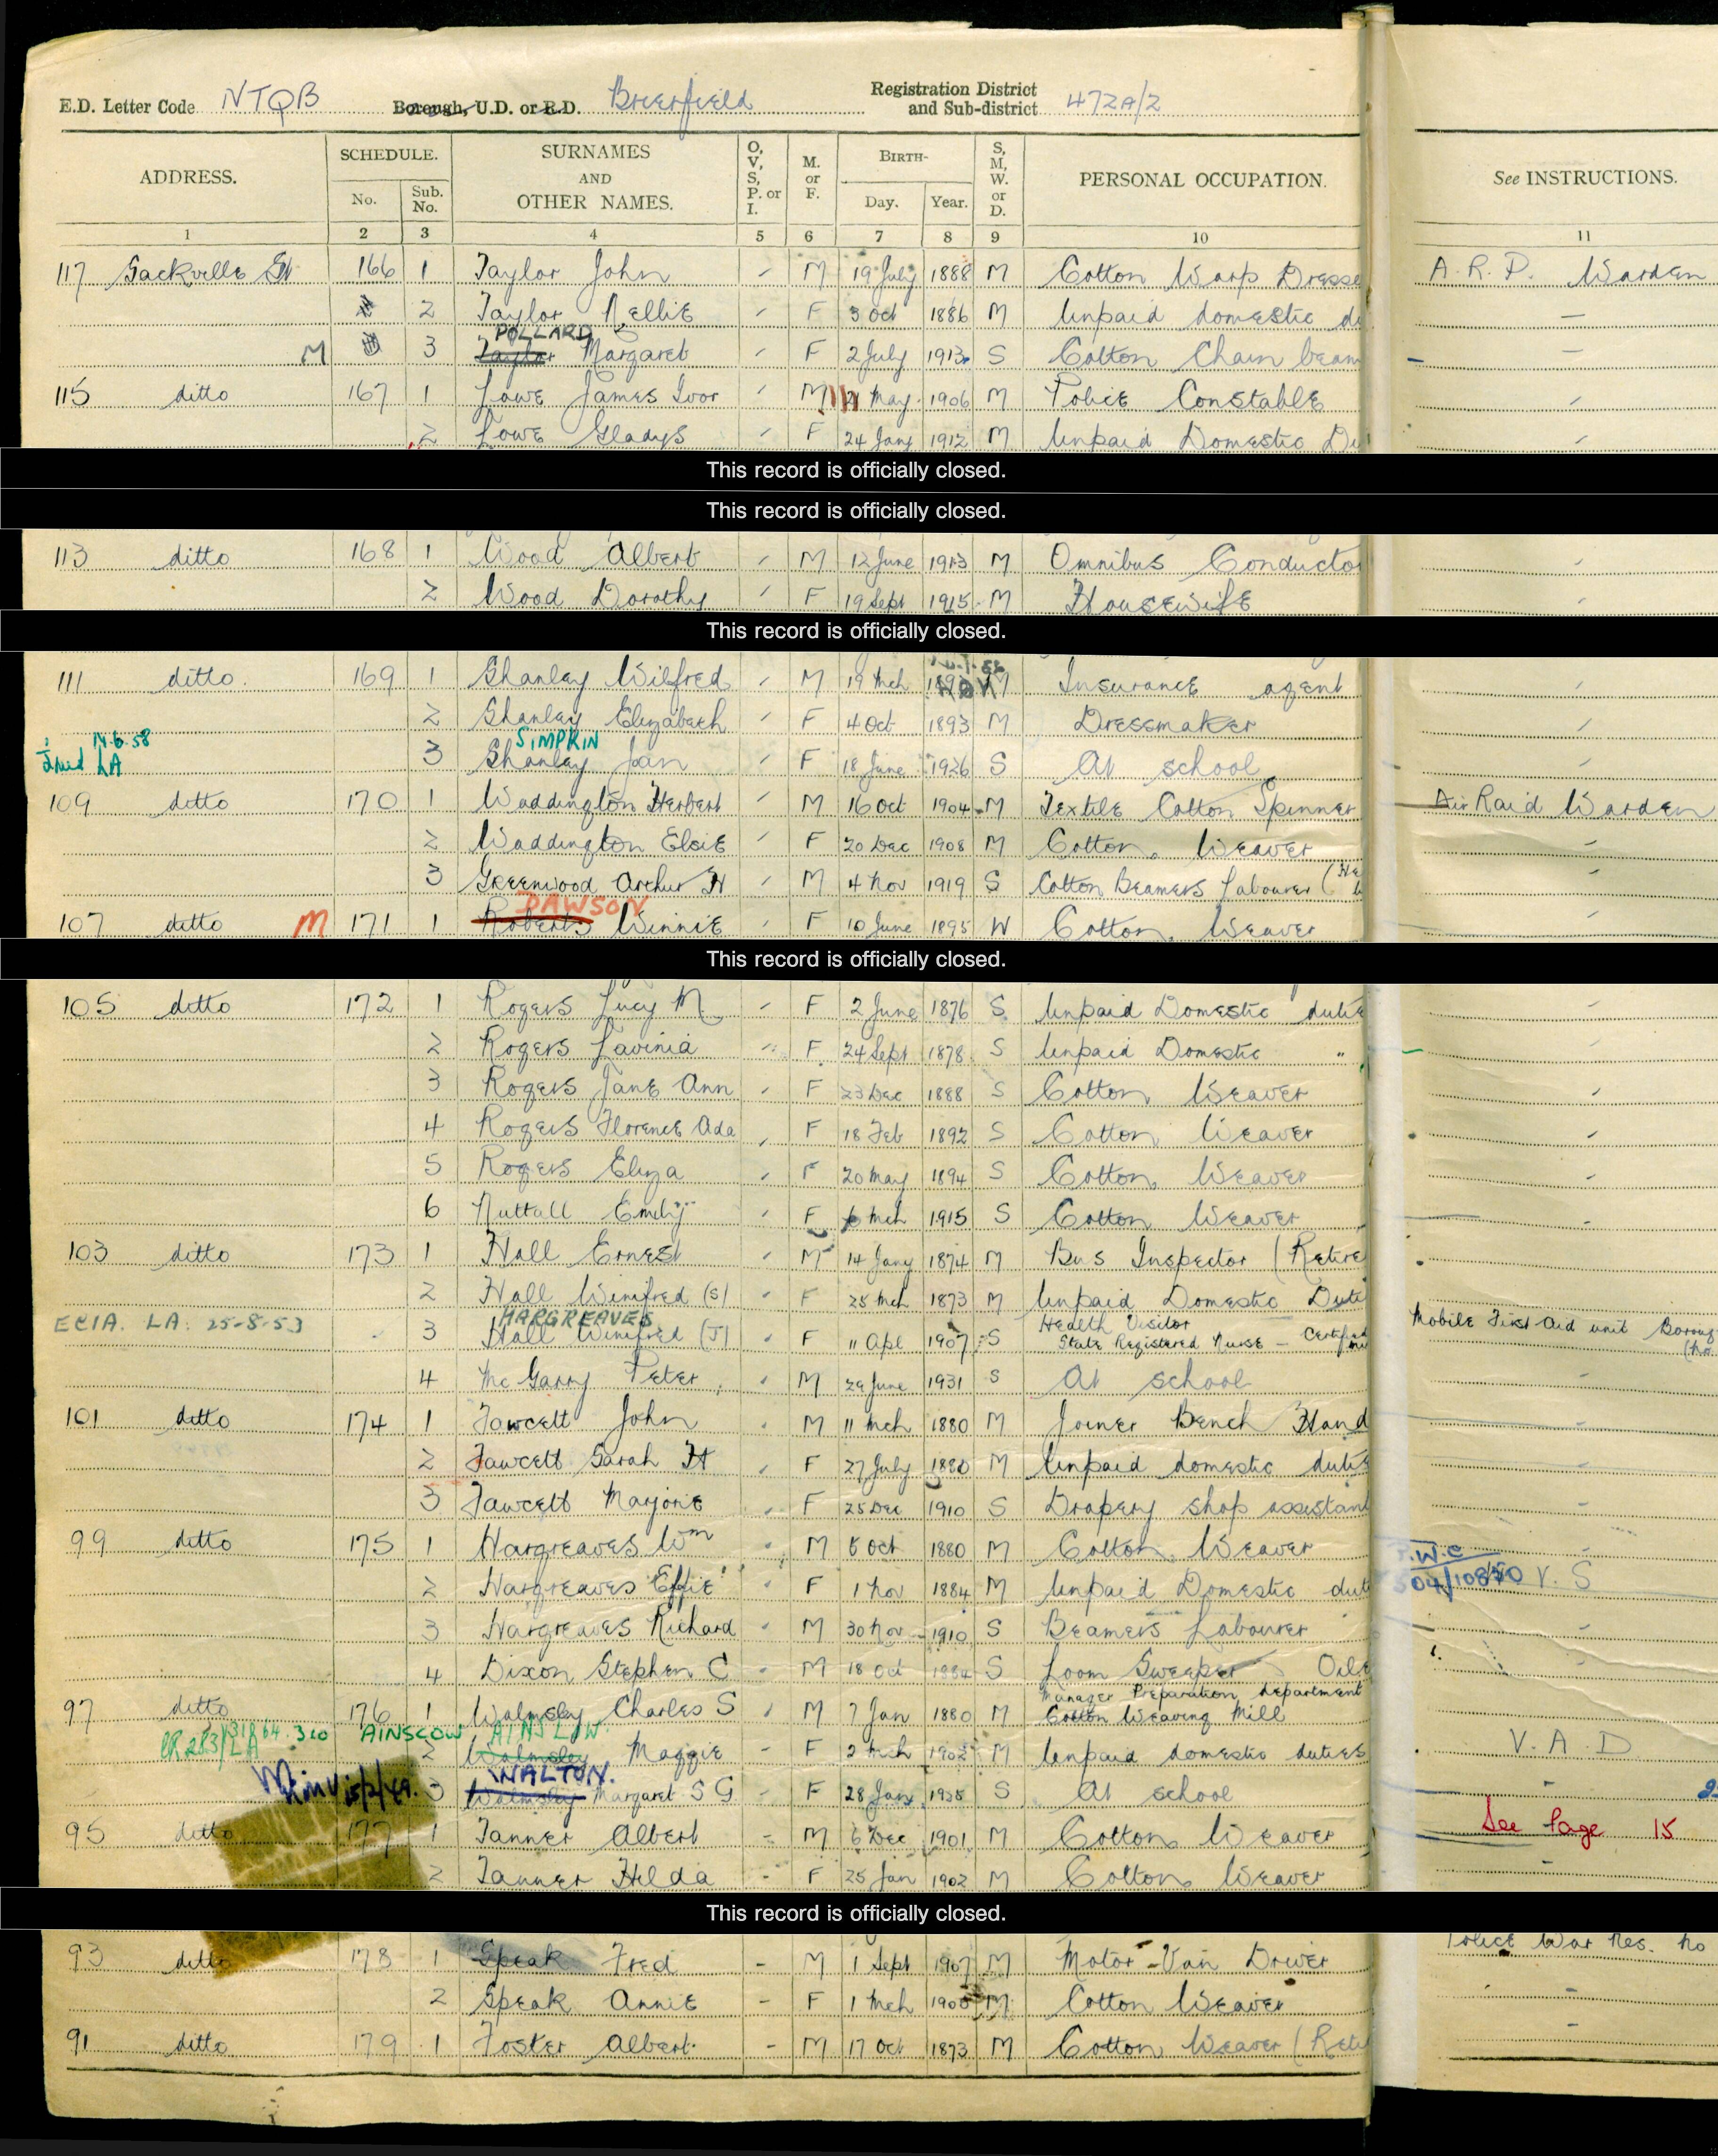 E.D. Letter Code NTQB Borough, U.D. or R.D. Brierfield Registration District and Sub-district 472A/2
ADDRESS. SCHEDULE. No. Sub. No. SURNAMES AND OTHER NAMES. O, V, S, P. or I. M. or F. BIRTH- Day. Year. S, M, W. or D. PERSONAL OCCUPATION. See INSTRUCTIONS.
1 2 3 4 5 6 7 8 9 10 11
117 Sackville St 166 1 Taylor John - M 19 July 1888 M Cotton Warp Dresse A.R.P. Warden
2 Taylor Nellie - F 3 Oct 1886 M Unpaid domestic du —
POLLARD
M 3 Taylor Margaret - F 2 July 1913 S Cotton Chain beam —
115 ditto 167 1 Lowe James Ivor - M 21 May 1906 M Police Constable -
2 Lowe Gladys - F 24 Jany 1912 M Unpaid Domestic Du -
This record is officially closed.
This record is officially closed.
113 ditto 168 1 Wood Albert - M 12 June 1913 M Omnibus Conducto -
2 Wood Dorothy - F 19 Sept 1915 M Housewife -
This record is officially closed.
111 ditto 169 1 Shanley Wilfred - M 19 Mch M Insurance agent -
2 Shanley Elizabeth - F 4 Oct 1893 M Dressmaker -
14.6.58 SIMPKIN
LA 3 Shanley Joan - F 18 June 1926 S At school
109 ditto 170 1 Waddington Herbert - M 16 Oct 1904 M Textile Cotton Spinner Air Raid Warden
2 Waddington Elsie - F 20 Dec 1908 M Cotton Weaver -
3 Greenwood Arthur H - M 4 Nov 1919 S Cotton Beamers Labourer (He -
DAWSON
107 ditto M 171 1 Roberts Winnie - F 10 June 1895 W Cotton Weaver -
This record is officially closed.
105 ditto 172 1 Rogers Lucy M - F 2 June 1876 S Unpaid Domestic dutie -
2 Rogers Lavinia - F 24 Sept 1878 S Unpaid Domestic " -
3 Rogers Jane Ann - F 23 Dec 1888 S Cotton Weaver -
4 Rogers Florence Ada - F 18 Feb 1892 S Cotton Weaver -
5 Rogers Eliza - F 20 May 1894 S Cotton Weaver -
6 Nuttall Emily - F 6 Mch 1915 S Cotton Weaver -
103 ditto 173 1 Hall Ernest - M 14 Jany 1874 M Bus Inspector (Retire -
2 Hall Winifred (S) - F 25 Mch 1873 M Unpaid Domestic Duti
HARGREAVES Health Visitor
ECIA. LA. 25-8-53 3 Hall Winifred (J) - F 11 Apl 1907 S State Registered Nurse — Certified Mobile First Aid unit Boroug
4 Mc Garry Peter - M 29 June 1931 S At school -
101 ditto 174 1 Fawcett John - M 11 Mch 1880 M Joiner Bench Hand -
2 Fawcett Sarah H - F 27 July 1880 M Unpaid domestic dutie -
3 Fawcett Marjorie - F 25 Dec 1910 S Drapery shop assistant -
99 ditto 175 1 Hargreaves Wm - M 5 Oct 1880 M Cotton Weaver -
2 Hargreaves Effie - F 1 Nov 1884 M Unpaid Domestic dut V.S
3 Hargreaves Richard - M 30 Nov 1910 S Beamers Labourer -
4 Dixon Stephen C - M 18 Oct 1884 S Loom Sweeper Oile -
Manager Preparation department
97 ditto 176 1 Walmsley Charles S - M 7 Jan 1880 M Cotton Weaving Mill
AINSCOW AINSLOW
2 Walmsley Maggie - F 2 Mch 1902 M Unpaid domestic duties V.A.D
WALTON.
3 Walmsley Margaret S G - F 28 Jan 1935 S At school -
95 ditto 177 1 Tanner Albert - M 6 Dec 1901 M Cotton Weaver See Page 15
2 Tanner Hilda - F 25 Jan 1902 M Cotton Weaver -
This record is officially closed.
93 ditto 178 1 Speak Fred - M 1 Sept 1907 M Motor-Van Driver Police War Res. No
2 Speak Annie - F 1 Mch 1908 M Cotton Weaver -
91 ditto 179 1 Foster Albert - M 17 Oct 1873 M Cotton Weaver (Reti -